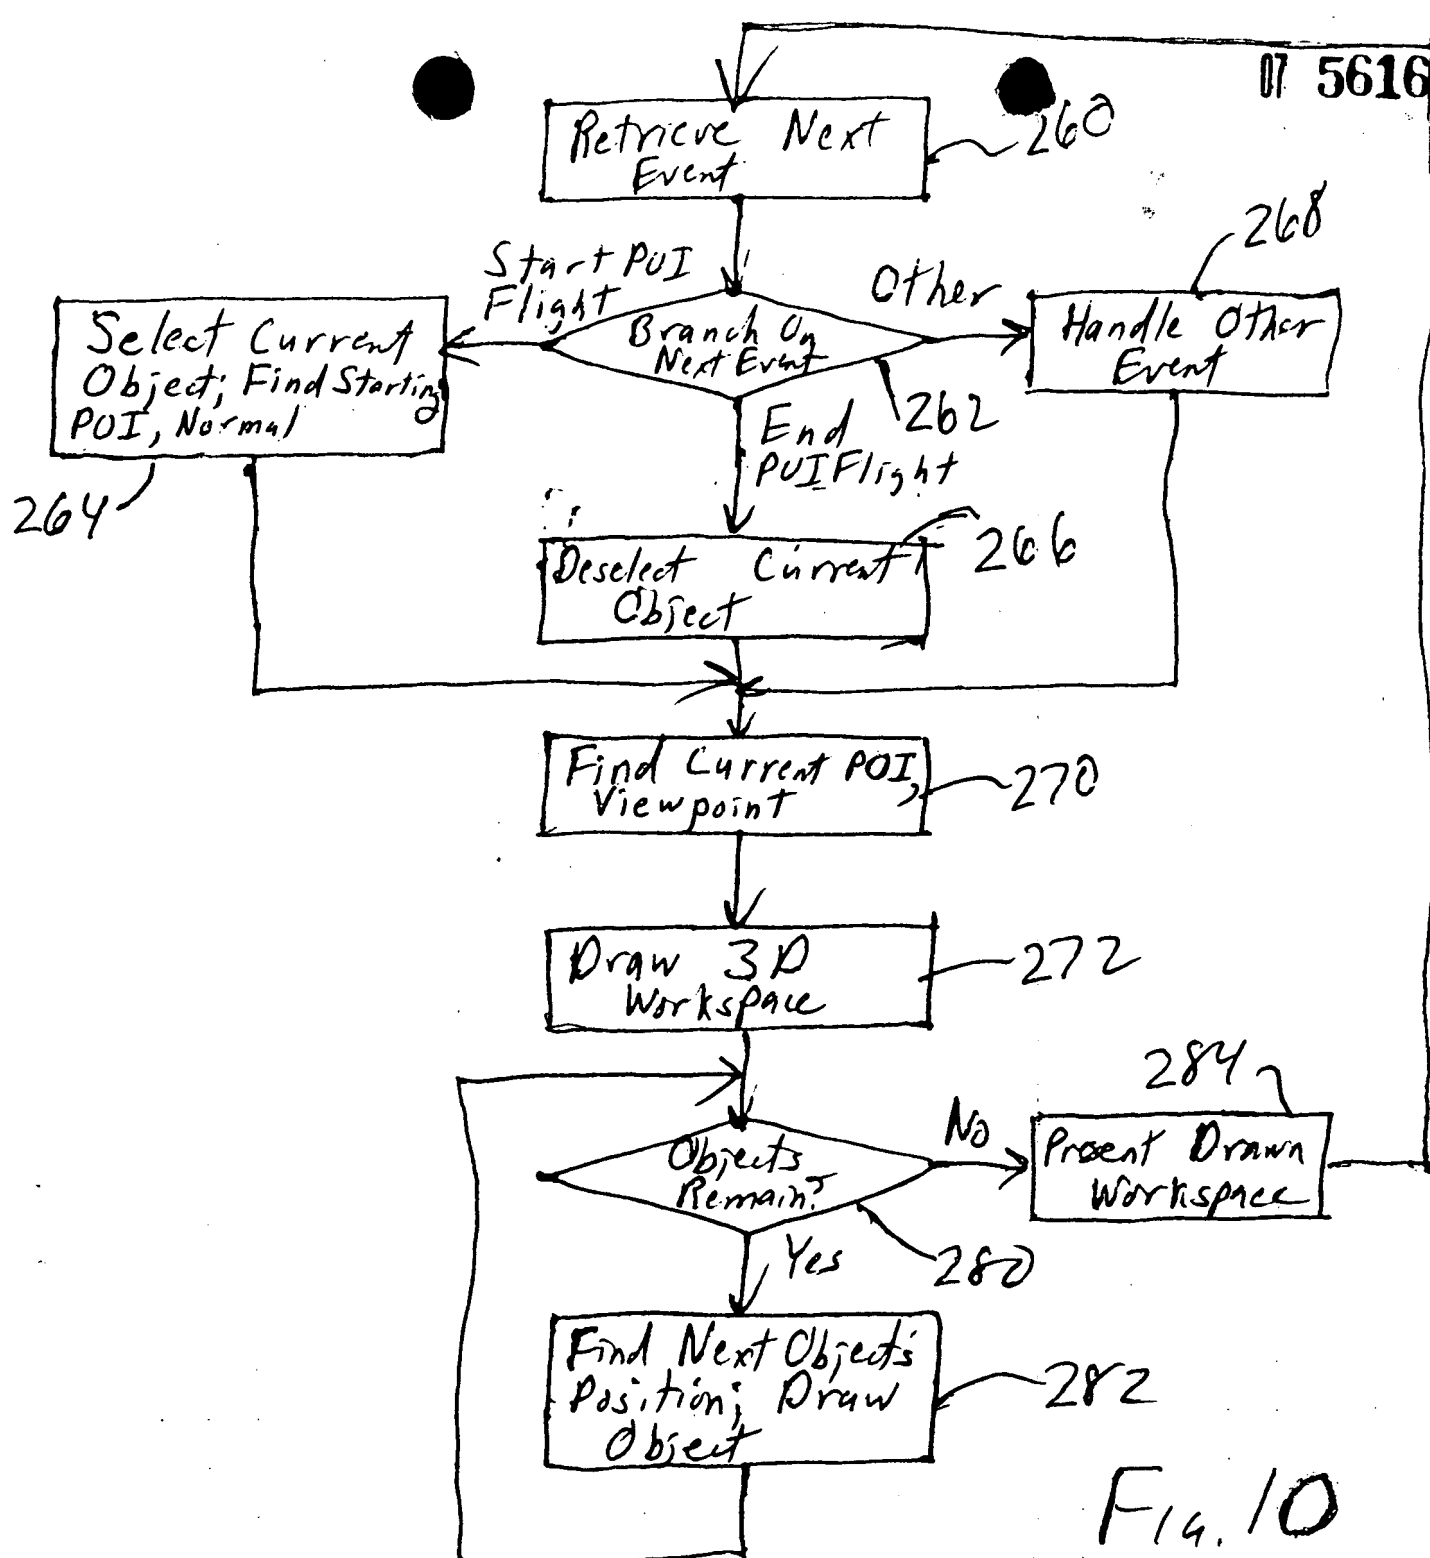 07 5616
Retrieve Next
Event
260
Start POI
Flight
Other
268
Select Current
Object; Find Starting
POI, Normal
264
Branch On
Next Event
262
Handle Other
Event
End
POI Flight
Deselect Current
Object
266
Find Current POI,
Viewpoint
270
Draw 3D
Workspace
272
Objects
Remain?
280
No
284
Present Drawn
Workspace
Yes
Find Next Object's
Position; Draw
Object
282
Fig. 10